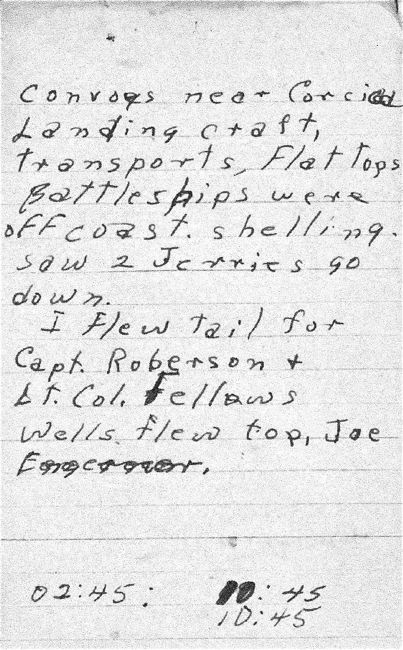 Convoys near
Landing craft,
transports, Flat Tops
Battleships were
off coast. shelling.
saw 2 Jerries go
down.
I flew tail for
Capt. Roberson +
Lt. Col. Fellows
Wells flew top, Joe
02:45:
:45
10:45